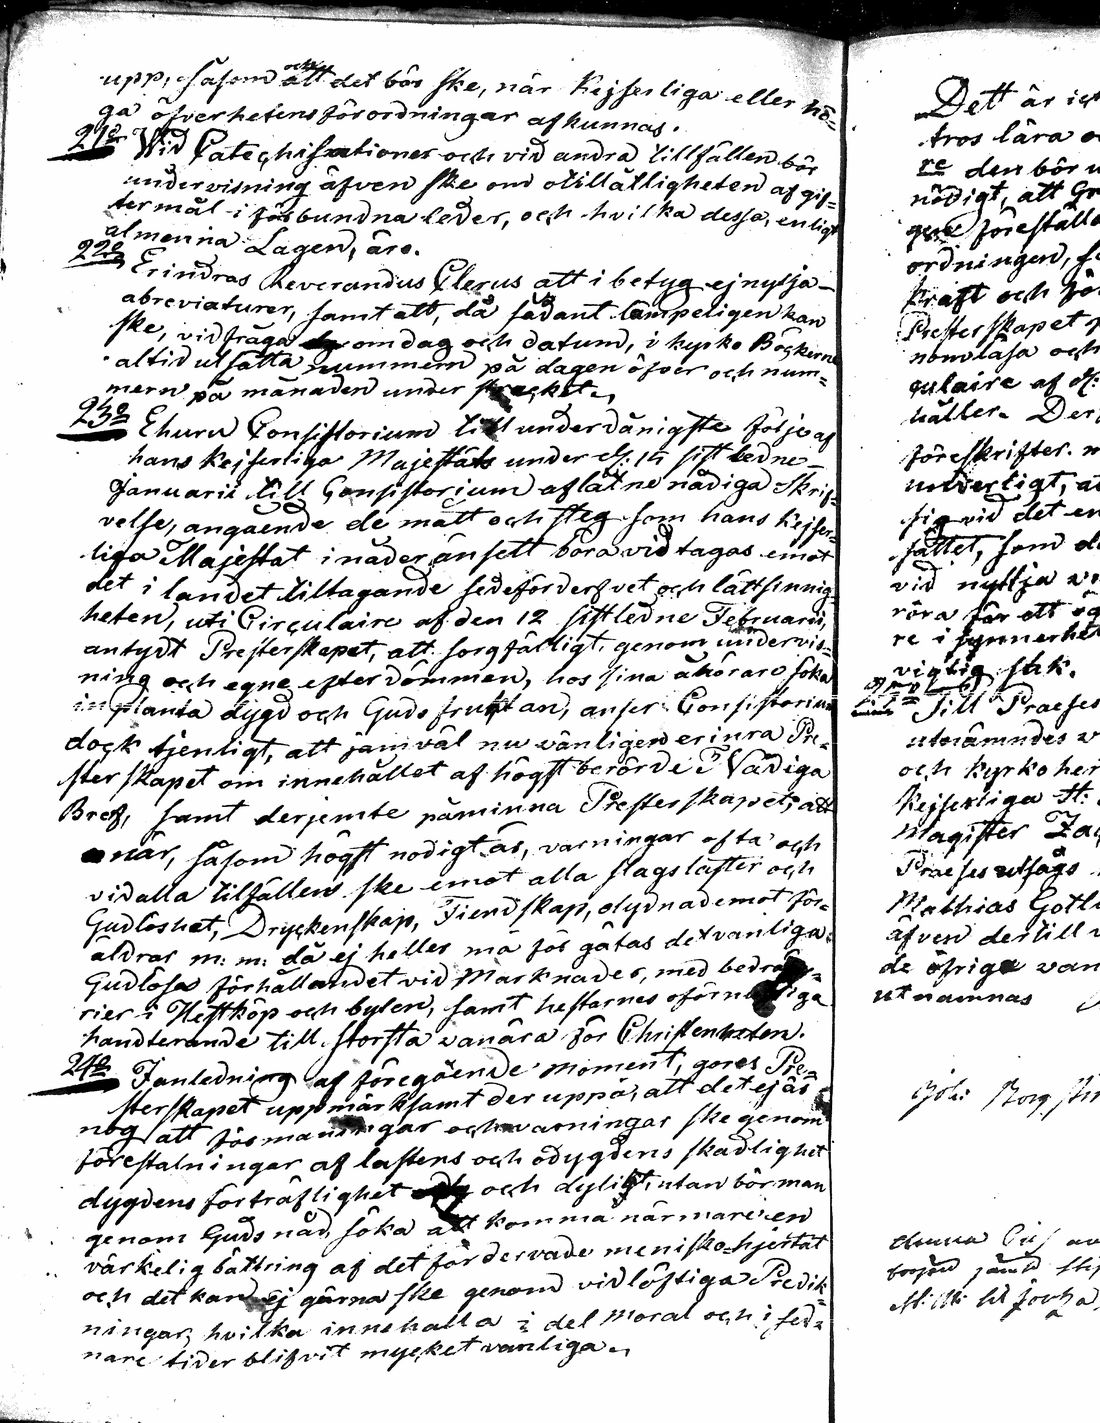 upp, såsom ock att det bör ske, när Kejserliga eller hö=
ga öfverhetens förordningar afkunnas.
21o Wid Catechisationer och vid andra tillfällen bör
undervisning äfven ske om otillåtligheten af gif=
termål i förbundna leder, och hvilka dessa, enligt
almenna Lagen, äro.
22o Erindras Reverandus Clerus att i betyg ej nytja
abreviaturer, samt att, då sådant lämpeligen kan
ske, vid fråga om dag och datum, i kyrko Böckerne
altid utsätta nummern på dagen öfver och num=
mern på månaden under strecket.
23o Ehuru Consistorium till underdånigste följe af
hans Kejserliga Majestäts under d: 15 sistledne
Januarii till Consistorium aflåtne nådiga Skrif=
velse, angående de mått och steg som hans Kejser=
liga Majestät i nåder ansett böra vidtagas emot
det i landet tiltagande sedeförderfvet och lättsinnig=
heten, uti Circulaire af den 12 sistledne Februarii,
antydt Presterskapet, att sorgfälligt genom undervis=
ning och egne efterdömmen, hos sina åhörare söka
inplanta dygd och Gudsfruktan, anser Consistorium
dock tjenligt, att jämväl nu vänligen erinra Pre=
sterskapet om innehållet af högstberörde Nådiga
Bref, samt derjemte påminna Presterskapet, att
när, såsom högst nödigt är, varningar ofta och
vid alla tilfällen ske emot alla slags laster och
Gudlöshet, Dryckenskap, Fiendskap, olydnad emot för=
äldrar m: m: då ej heller må förgätas det vanliga
Gudlösa förhållandet vid Marknader, med bedräge=
rier i Hestköp och byten, samt hestarnes oförnuftiga
handterande till största vanära för Christenheten.
24o I anledning af föregående moment, göres Pre=
sterskapet uppmärksamt deruppå, att det ej är
nog att förmaningar och varningar ske genom
föreställningar af lastens och odygdens skadlighet
dygdens förträflighet och dylikt, utan bör man
genom Guds nåd söka att komma närmare en
värkelig bättring af det förderfvade menisko=hjertat
och det kan ej gärna ske genom vidlöftiga Predik=
ningar, hvilka innehålla en del Moral och i sed=
nare tider blifvit mycket vanliga.
Dett är
tros lära
re den bör
nödigt, att
föreställa
ordningen,
kraft och
Presterskapet
läsa och
culaire af d:
håller. Der
föreskrifter.
sig vid det
sättet, som
vid nyttja
röra för ett
re i synnerhet
vigtig sak.
Till Praeses
utnämndes
och kyrkoher
Kejserliga
Magister
Praeses utsågs
Mathias Gotl
äfven dertill
de öfriga
utnämnas